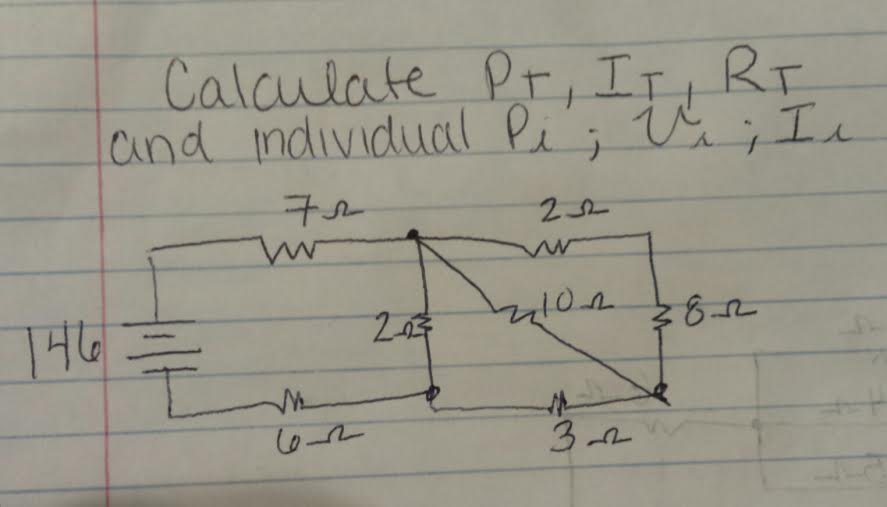 Calculate PT, IT, RT
and individual Pi ; Vi ; Ii
7Ω
2Ω
146
2Ω
10Ω
8Ω
6Ω
3Ω